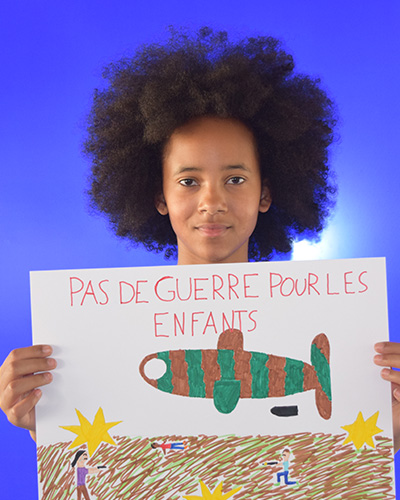 PAS DE GUERRE POUR LES
ENFANTS